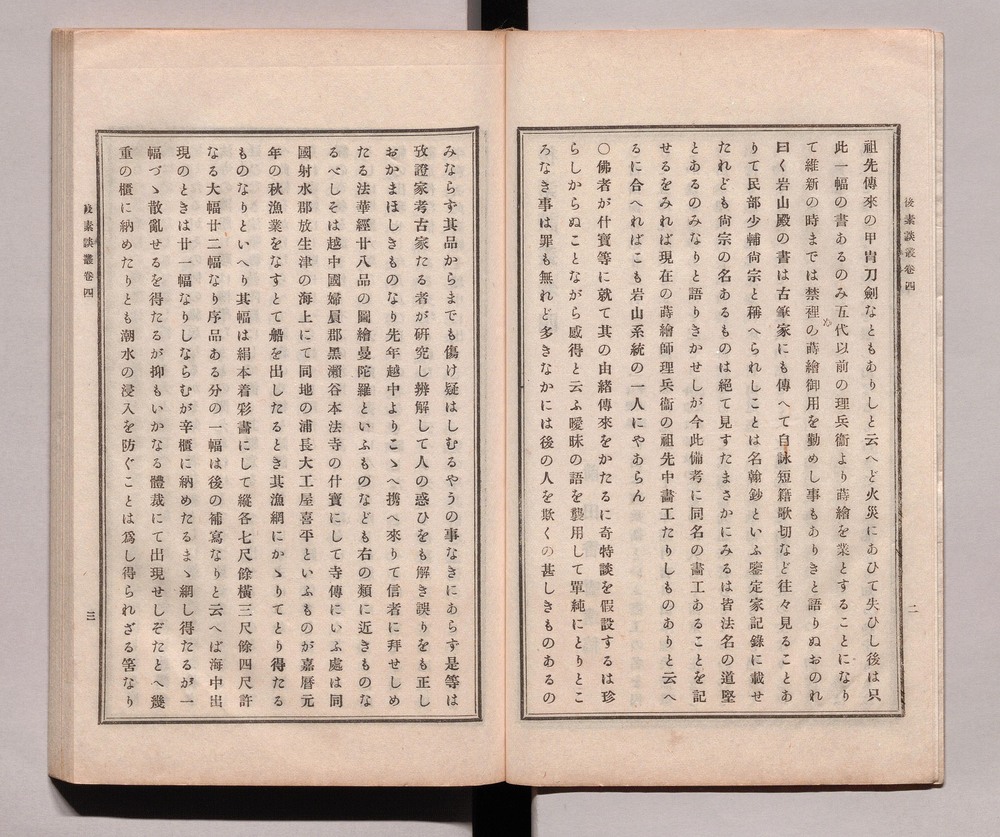 後素談叢卷四
二
祖先傳來の甲冑刀劍なともありしと云へど火災にあひて失ひし後は只
此一幅の書あるのみ五代以前の理兵衞より蒔繪を業とすることになり
て維新の時までは禁裡の蒔繪御用を勤めし事もありきと語りぬおのれ
曰く岩山殿の書は古筆家にも傳へて自詠短籍歌切など往々見ることあ
りて民部少輔尙宗と稱へられしことは名翰鈔といふ鑒定家記錄に載せ
たれども尙宗の名あるものは絕て見すたまさかにみるは皆法名の道堅
とあるのみなりと語りきかせしが今此備考に同名の畫工あることを記
せるをみれば現在の蒔繪師理兵衞の祖先中畫工たりしものありと云へ
るに合へればこも岩山系統の一人にやあらん
〇佛者が什寶等に就て其の由緖傳來をかたるに奇特談を假設するは珍
らしからぬことながら感得と云ふ曖昧の語を襲用して單純にとりとこ
ろなき事は罪も無れど多きなかには後の人を欺くの甚しきものあるの
みならす其品からまでも傷け疑はしむるやうの事なきにあらす是等は
攷證家考古家たる者が硏究し辨解して人の惑ひをも解き誤りをも正し
おかまほしきものなり先年越中よりこゝへ携へ來りて信者に拜せしめ
たる法華經廿八品の圖繪曼陀羅といふものなども右の類に近きものな
るべしそは越中國婦負郡黑瀨谷本法寺の什寶にして寺傳にいふ處は同
國射水郡放生津の海上にて同地の浦長大工屋喜平といふものが嘉曆元
年の秋漁業をなすとて船を出したるとき其漁網にかゝりてとり得たる
ものなりといへり其幅は絹本着彩畫にして縱各七尺餘橫三尺餘四尺許
なる大幅廿二幅なり序品ある分の一幅は後の補寫なりと云へば海中出
現のときは廿一幅なりしならむが辛櫃に納めたるまゝ網し得たるが一
幅づゝ散亂せるを得たるが抑もいかなる體裁にて出現せしぞたとへ幾
重の櫃に納めたりとも潮水の浸入を防ぐことは爲し得られざる筈なり
後素談叢卷四
三